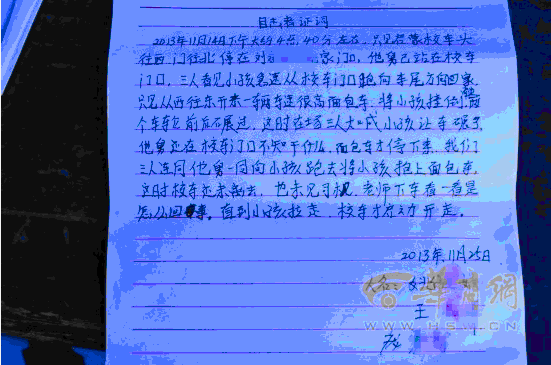 目击者证词
2013年11月14日下午大约4点40分左右,只见接孩校车头
往西门往北停在刘 家门口,他舅已站在校车
门口,三人看见小孩急速从校车门口跑向车尾方向回家
只见从西往东开来一辆车速很高面包车,将小孩撞倒,两
个车轮前后碾过,这时在场三人大喊小孩让车碾了
他舅还在校车门口不知干什么,面包车才停下来,我们
三人连同他舅一同向小孩跑去将小孩抱上面包车
这时校车还未离去,也未见司机、老师下车看一看是
怎么回事。直到小孩拉走,校车才启动开走。
2013年11月25日
王
华商网
WWW.HSW.CN